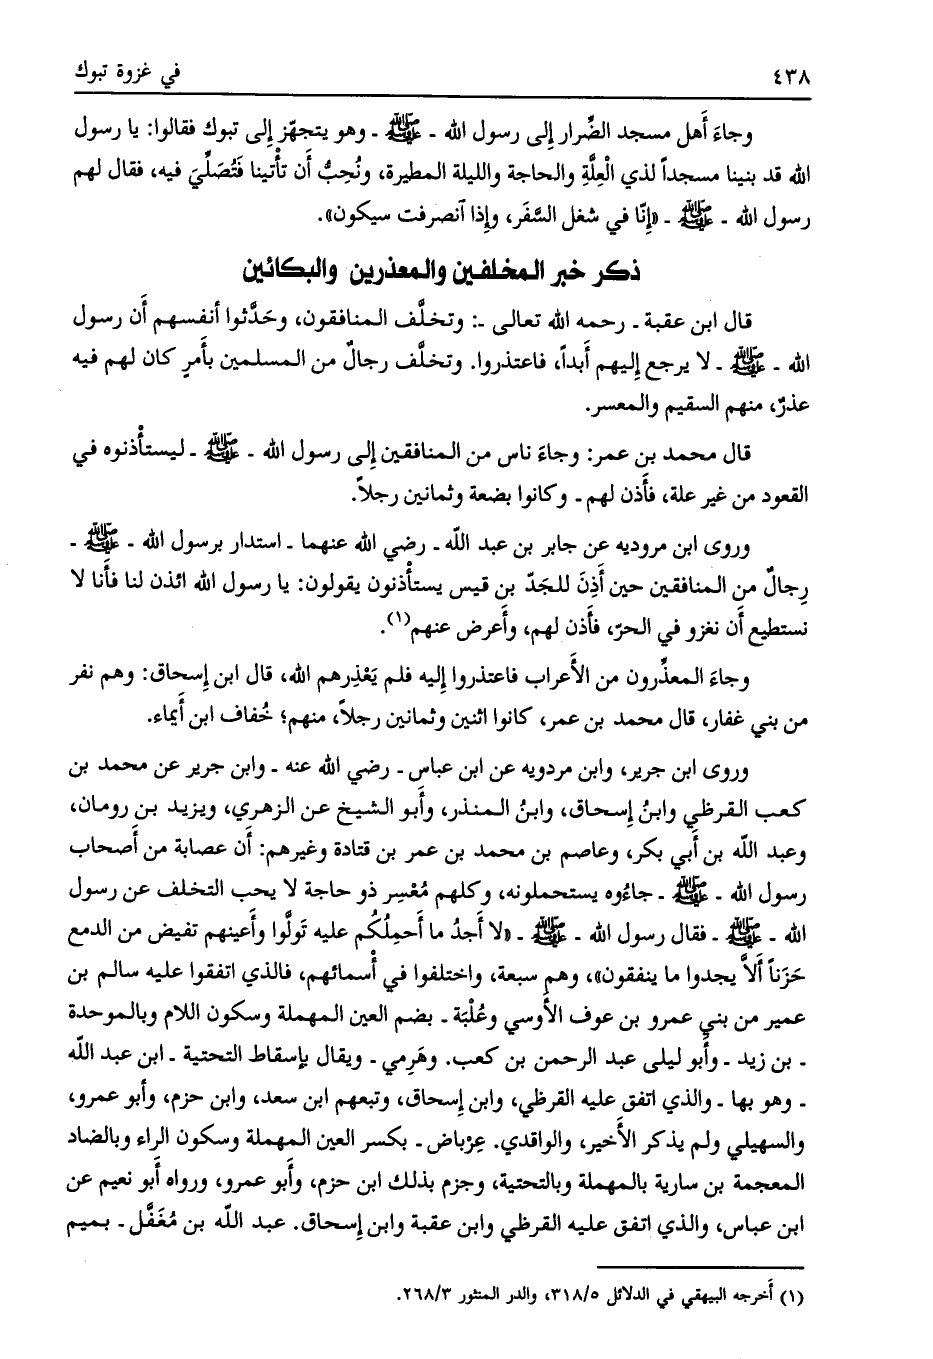 ٤٣٨
في غزوة تبوك
وجاءَ أَهل مسجد الضِّرار إِلى رسول الله ـ ﷺ ـ وهو يتجهّز إِلى تبوك فقالوا: يا رسول
الله قد بنينا مسجداً لذي الْعِلَّةِ والحاجة والليلة المطيرة، ونُحِبُّ أَن تأْتينا فَتُصَلِّيَ فيه، فقال لهم
رسول الله ـ ﷺ ـ «إِنّا في شغل السَّفَر، وإِذا ٱنصرفت سيكون».
ذكر خبر المخلفين والمعذرين والبكائين
قال ابن عقبة ـ رحمه الله تعالى ـ: وتخلَّف المنافقون، وحَدَّثوا أنفسهم أن رسول
الله ـ ﷺ ـ لا يرجع إِليهم أَبداً، فاعتذروا. وتخلَّف رجالٌ من المسلمين بأَمرٍ كان لهم فيه
عذرٌ، منهم السقيم والمعسر.
قال محمد بن عمر: وجاءَ ناس من المنافقين إِلى رسول الله ـ ﷺ ـ ليستأْذنوه في
القعود من غير علة، فأَذن لهم ـ وكانوا بضعة وثمانين رجلاً.
وروى ابن مروديه عن جابر بن عبد اللّه ـ رضي الله عنهما ـ استدار برسول الله ـ ﷺ ـ
رِجالٌ من المنافقين حين أَذِنَ للجَدّ بن قيس يستأْذنون يقولون: يا رسول الله ائذن لنا فأَنا لا
نستطيع أَن نغزو في الحرّ، فأَذن لهم، وأَعرض عنهم(١).
وجاءَ المعذِّرون من الأَعراب فاعتذروا إليه فلم يَعْذِرهم الله، قال ابن إِسحاق: وهم نفر
من بني غفار، قال محمد بن عمر، كانوا اثنين وثمانين رجلاً، منهم؛ خُفاف ابن أَيماء.
وروى ابن جرير، وابن مردويه عن ابن عباس ـ رضي الله عنه ـ وابن جرير عن محمد بن
كعب القرظي وابنُ إِسحاق، وابنُ المنذر، وأَبو الشيخ عن الزهري، ويزيد بن رومان،
وعبد اللّه بن أَبي بكر، وعاصم بن محمد بن عمر بن قتادة وغيرهم: أَن عصابة من أَصحاب
رسول الله ـ ﷺ ـ جاءُوه يستحملونه، وكلهم مُعْسِر ذو حاجة لا يحب التخلف عن رسول
الله ـ ﷺ ـ فقال رسول الله ـ ﷺ ـ «لا أَجدُ ما أَحمِلُكُم عليه تَولَّوا وأَعينهم تفيض من الدمع
حَزَناً أَلاَّ يجدوا ما ينفقون»، وهم سبعة، واختلفوا في أَسمائهم، فالذي اتفقوا عليه سالم بن
عمير من بني عمرو بن عوف الأَوسي وعُلْبَة ـ بضم العين المهملة وسكون اللام وبالموحدة
ـ بن زيد ـ وأَبو ليلى عبد الرحمن بن كعب. وهَرِمي ـ ويقال بإِسقاط التحتية ـ ابن عبد اللّه
ـ وهو بها ـ والذي اتفق عليه القرظي، وابن إِسحاق، وتبعهم ابن سعد، وابن حزم، وأبو عمرو،
والسهيلي ولم يذكر الأَخير، والواقدي. عِرْباض ـ بكسر العين المهملة وسكون الراء وبالضاد
المعجمة بن سارية بالمهملة وبالتحتية، وجزم بذلك ابن حزم، وأَبو عمرو، ورواه أَبو نعيم عن
ابن عباس، والذي اتفق عليه القرظي وابن عقبة وابن إِسحاق. عبد اللّه بن مُغَفَّل ـ بميم
(١) أخرجه البيهقي في الدلائل ٣١٨/٥، والدر المنثور ٢٦٨/٣.